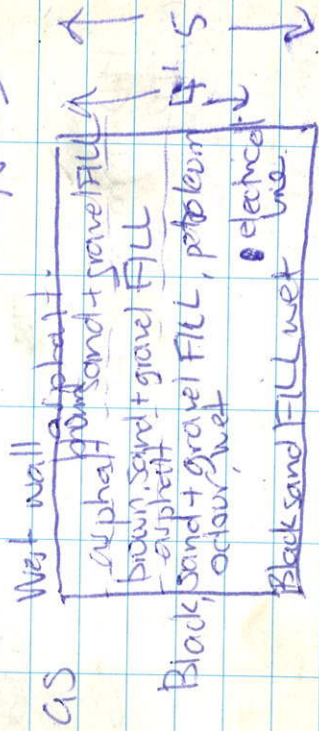 West wall
GS
asphalt
brown sand + gravel FILL
asphalt
brown, sand + gravel FILL
asphalt
Black, sand + gravel FILL, petroleum
odour, wet
electrical
line
Black sand FILL wet
4'
5